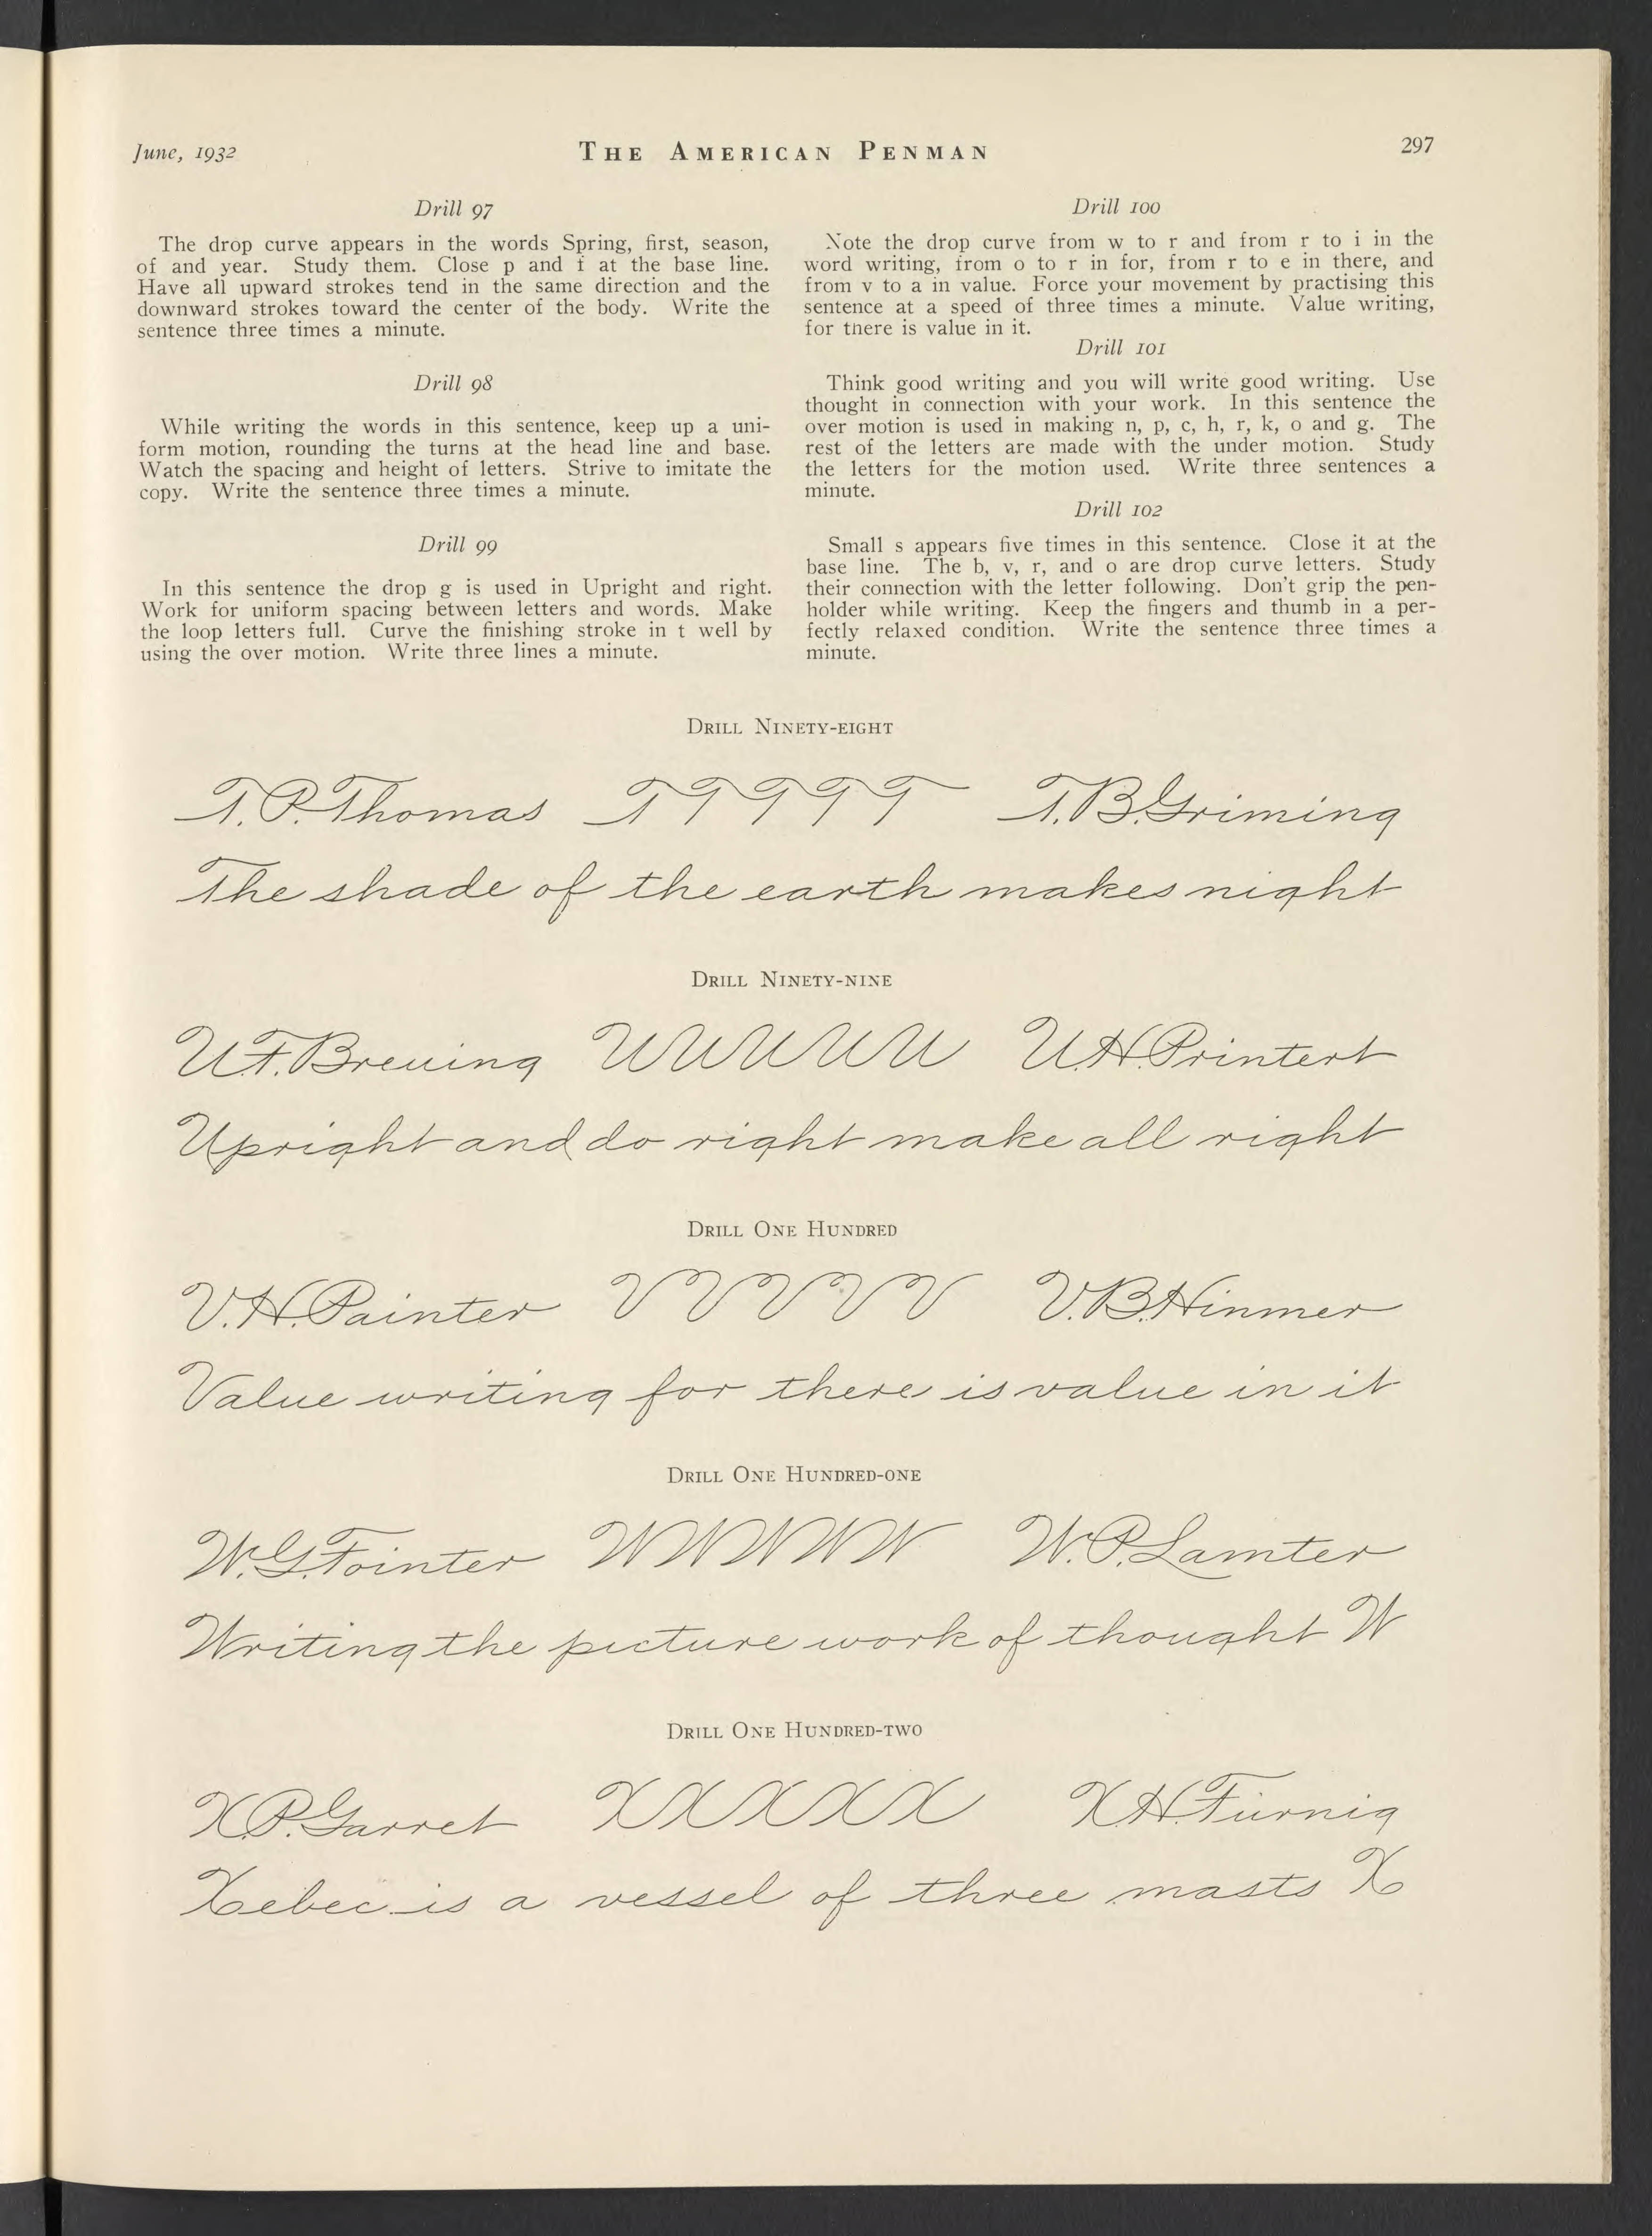 June, 1932
THE AMERICAN PENMAN
297
Drill 97
The drop curve appears in the words Spring, first, season,
of and year. Study them. Close p and f at the base line.
Have all upward strokes tend in the same direction and the
downward strokes toward the center of the body. Write the
sentence three times a minute.
Drill 98
While writing the words in this sentence, keep up a uni-
form motion, rounding the turns at the head line and base.
Watch the spacing and height of letters. Strive to imitate the
copy. Write the sentence three times a minute.
Drill 99
In this sentence the drop g is used in Upright and right.
Work for uniform spacing between letters and words. Make
the loop letters full. Curve the finishing stroke in t well by
using the over motion. Write three lines a minute.
Drill 100
Note the drop curve from w to r and from r to i in the
word writing, from o to r in for, from r to e in there, and
from v to a in value. Force your movement by practising this
sentence at a speed of three times a minute. Value writing,
for tnere is value in it.
Drill 101
Think good writing and you will write good writing. Use
thought in connection with your work. In this sentence the
over motion is used in making n, p, c, h, r, k, o and g. The
rest of the letters are made with the under motion. Study
the letters for the motion used. Write three sentences a
minute.
Drill 102
Small s appears five times in this sentence. Close it at the
base line. The b, v, r, and o are drop curve letters. Study
their connection with the letter following. Don't grip the pen-
holder while writing. Keep the fingers and thumb in a per-
fectly relaxed condition. Write the sentence three times a
minute.
DRILL NINETY-EIGHT
T. P. Thomas T T T T T T. B. Griming
The shade of the earth makes night
DRILL NINETY-NINE
U. F. Breuing U U U U U U. H. Printert
Upright and do right make all right
DRILL ONE HUNDRED
V. H. Painter V V V V V V. B. Hinmer
Value writing for there is value in it
DRILL ONE HUNDRED-ONE
W. G. Fointer W W W W W W. P. Lamter
Writing the picture work of thought W
DRILL ONE HUNDRED-TWO
X. P. Garret X X X X X X. H. Furnig
Xebec is a vessel of three masts X